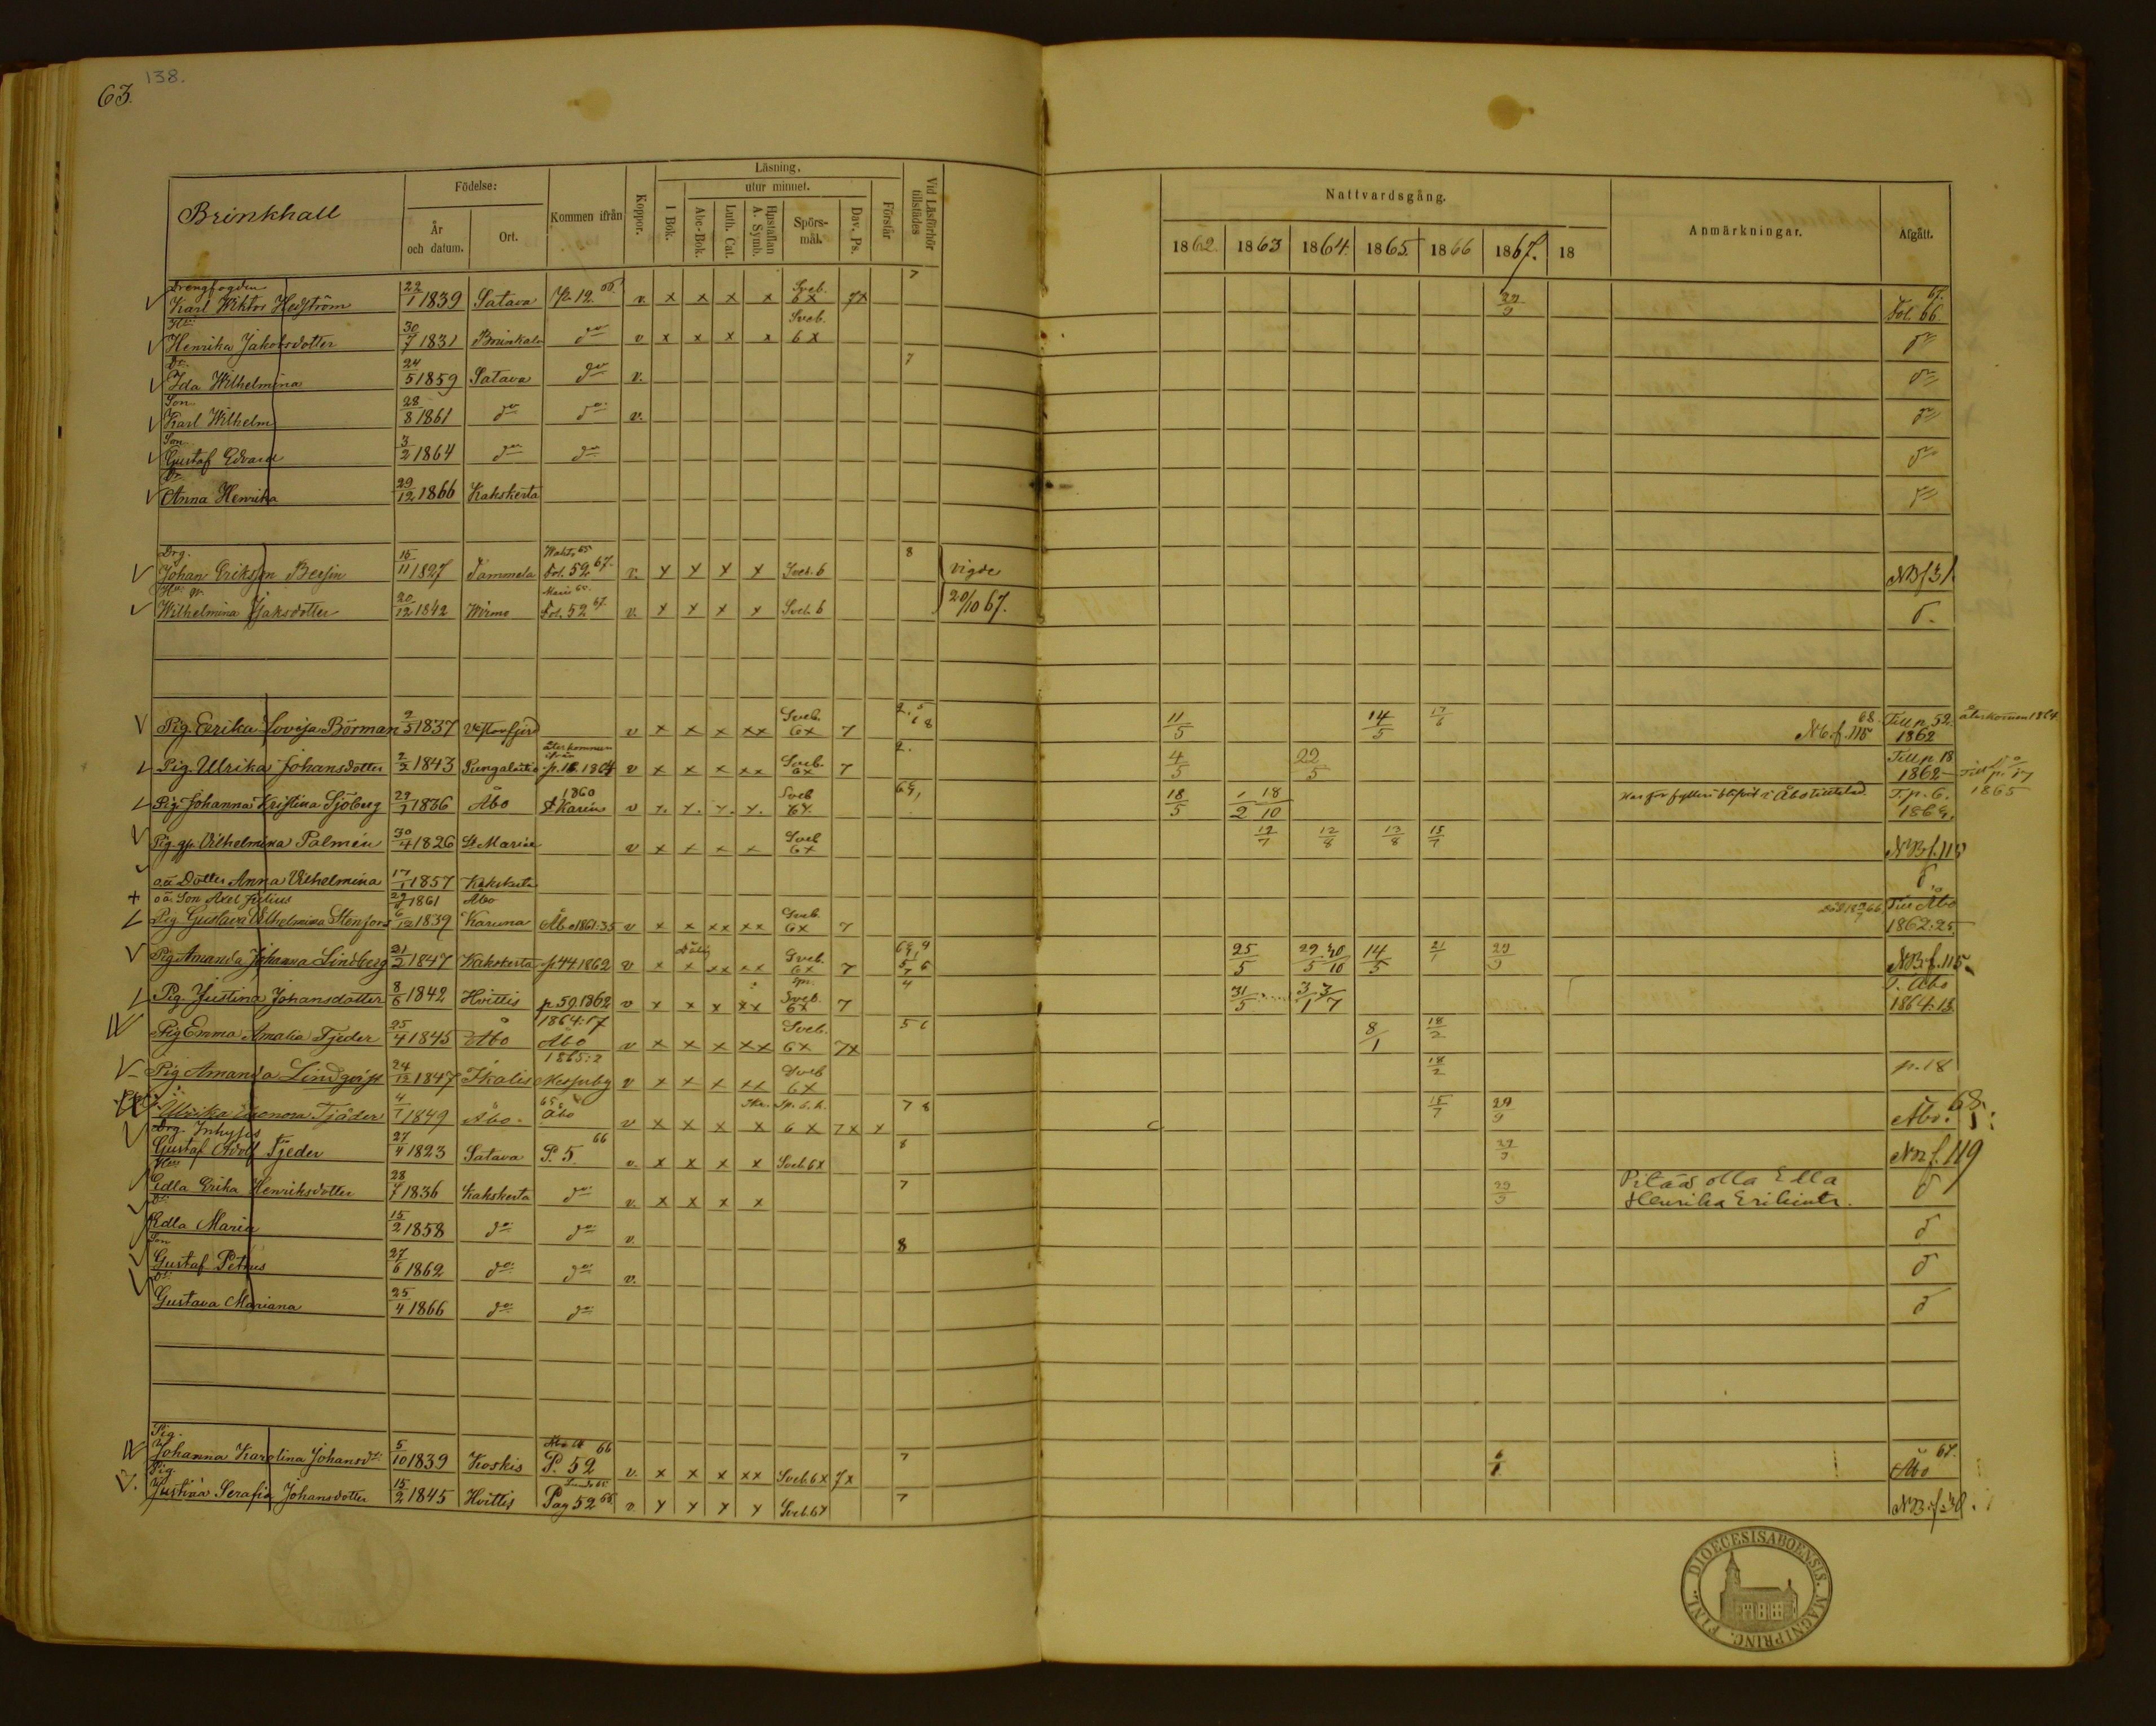 63.
138.
Brinkhall
Födelse:
År och datum.
Ort.
Kommen ifrån
Koppor.
Läsning.
utur minnet.
I Bok.
Abc-Bok.
Luth. Cat.
Hustaflan A. Symb.
Spörs-mål.
Dav. Ps.
Förstår
Vid Läsförhör tillstädes
Nattvardsgång.
1862. 1863 1864. 1865. 1866 1867. 18
Anmärkningar.
Afgått.
Drengfogden 7 67.
Karl Wiktor Hedström 22/1 1839 Satava p. 12. 66 v. x x x x Sveb. 6 x 7x 29/9 Fol. 66.
Hu.
Henrika Jakobsdotter 30/7 1831 Brinkala do v x x x x Sveb. 6 x do
Dr. 7
Ida Wilhelmina 24/5 1859 Satava do v. do
Son
Karl Wilhelm 28/8 1861 do do v. do
Son
Gustaf Edvard 3/2 1864 do do do
Dr
Anna Henrika 29/12 1866 Kakskerta do
Drg. 8
Johan Eriksson Bersin 15/11 1827 Tammela Fol. 52 67. v. x x x x Sveb. 6 vigde NB f 31.
Wilhelmina Jaksdotter 20/12 1842 Wirmo Fol. 52 67. v. x x x x Sveb. 6 20/10 67. d.
Pig. Eerika Lovisa Börman 2/5 1837 v x x x xx Sveb. 6x 7 11/5 14/5 17/6 68. Nb. f. 115 Till p. 52. 1862 återkommen 1864.
Pig. Ulrika Johansdotter 2/2 1843 Pungalaitio återkommen ifrån p. 18. 1864 v x x x xx Sveb. 6x 7 2. 4/5 22/5 Till p 18 1862
1865
Pig. Johanna Kristina Sjöberg 29/7 1836 Åbo 1860 St Karins v x. x. x. x. Sveb 6x. 18/5 1/2 18/10 T. p. 6. 1864.
Pig. gp. Vilhelmina Palmén 30/4 1826 St Mariæ v x x x x Sveb 6x 19/7 12/8 13/8 15/7 NB f. 115
o.ä Dotter Anna Vilhelmina 17/1 1857 Kakskerta d
o ä. Son Axel Julius 29/7 1861 Åbo
Pig. Gustava Vilhelmina Stenfors 6/12 1839 Karuna Åbo 1861:35 v x x xx xx Sveb. 6x 7 Till Åbo 1862:25
Pig. Amanda Johanna Lindberg 21/2 1847 Kakskerta p 44 1862 v x x xx xx Sveb. 6x 7 25/5 29/5 30/10 14/5 21/1 29/9 NB f. 115
Pig. Justina Johansdotter 8/6 1842 Hvittis p. 59. 1862 v x x x xx Sveb. 6x 7 4 31/5 3/1 3/7 T. Åbo 1864:13
1864:17
Pig Emma Amalia Tjeder 25/4 1845 Åbo Åbo v x x x xx Sveb. 6x 7x 5 6 8/1 18/2
1865:2
Pig Amanda Lindqvist 24/12 1847 Ikalis Messuby v x x x xx Sveb 6x 18/2 p. 18
Ulrika Eleonora Tjäder 4/7 1849 Åbo. 65 Åbo v x x x x 6 x 7x x 7 8 15/7 29/9 Åbo. 68.
Drg. Inhyses
Gustaf Adolf Tjeder 27/4 1823 Satava P. 5. 66 v. x x x x Sveb. 6x 8 29/9 NB f. 119
Hu
Edla Erika Henriksdotter 28/7 1836 Kakskerta do v. x x x x 7 29/9 Pitää olla Edla Henrika Erikintr. d
Dr.
Edla Maria 15/2 1858 do do v. d
Son 8
Gustaf Petrus 27/6 1862 do do v. d
Dr.
Gustava Mariana 25/4 1866 do do d
Pig.
Johanna Karolina Johansdr. 5/10 1839 Koskis P. 52 66 v. x x x xx Sveb. 6x 7x 7 Åbo 67.
Pig.
Justina Serafia Johansdotter 15/2 1845 Hvittis Pag 52 66. v. x x x x Sveb. 6x 7 NB. f. 30.
DIOECESIS ABOENSIS. MAGNI PRINC. FINL.